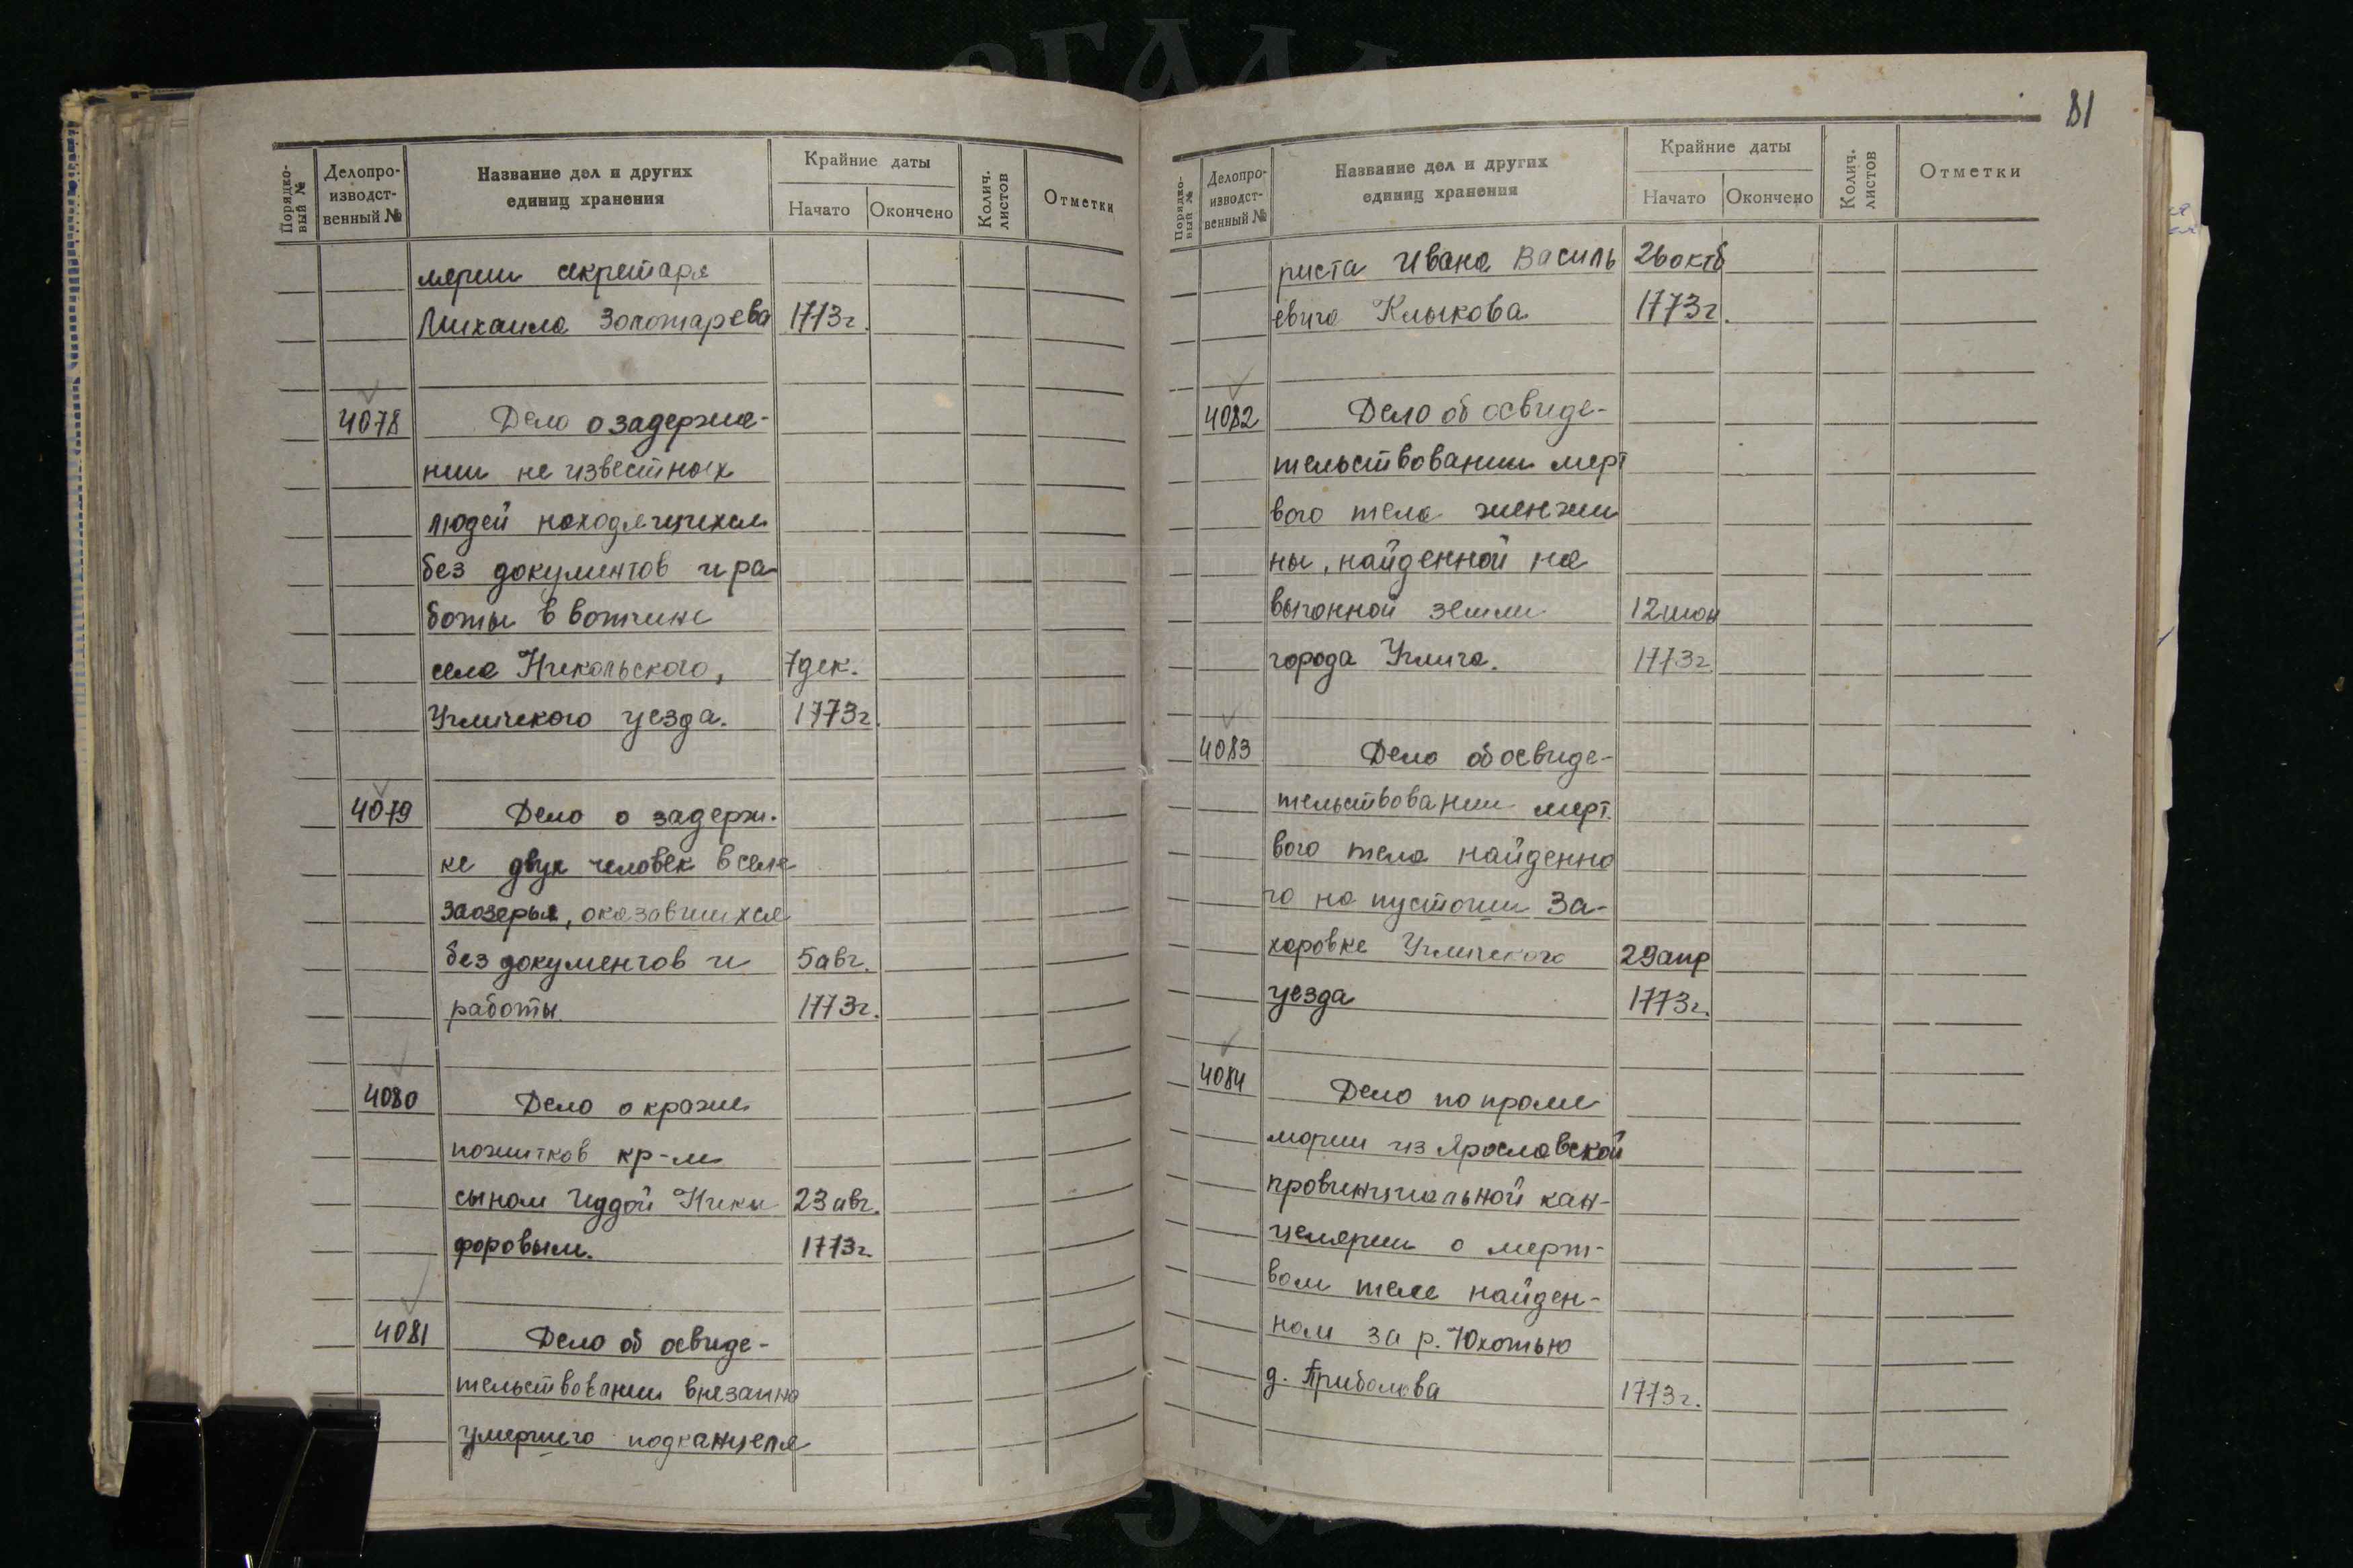 Порядко-
вый №
Делопро-
изводст-
венный №
Название дел и других
единиц хранения
Крайние даты
Начато
Окончено
Колич.
листов
Отметки
лярии секретаря
Михаила Золотарева 1773г.
4078 Дело о задержа-
нии не известных
людей находящихся
без документов и ра
боты в вотчине
села Никольского, 7дек.
Угличского уезда. 1773г.
4079 Дело о задерж.
ке двух человек в селе
Заозерья, оказавшихся
без документов и 5авг.
работы. 1773г.
4080 Дело о краже
пожитков кр-м
сыном Иудой Ники 23авг.
форовым. 1773г.
4081 Дело об освиде-
тельствовании внезапно
умершего подканцеля
81
Порядко-
вый №
Делопро-
изводст-
венный №
Название дел и других
единиц хранения
Крайние даты
Начато
Окончено
Колич.
листов
Отметки
риста Ивана Василь 26октб
евича Клыкова 1773г.
4082 Дело об освиде-
тельствовании мерт
вого тела женжи
ны, найденной на
выгонной земли 12июн
города Углича. 1773г.
4083 Дело об освиде-
тельствовании мерт.
вого тела найденно
го на пустоши За-
харовке Угличского 29апр
уезда 1773г.
4084 Дело по проме
мории из Ярославской
провинциальной кан-
целярии о мерт-
вом теле найден-
ном за р. Юхотью
д. 1773г.